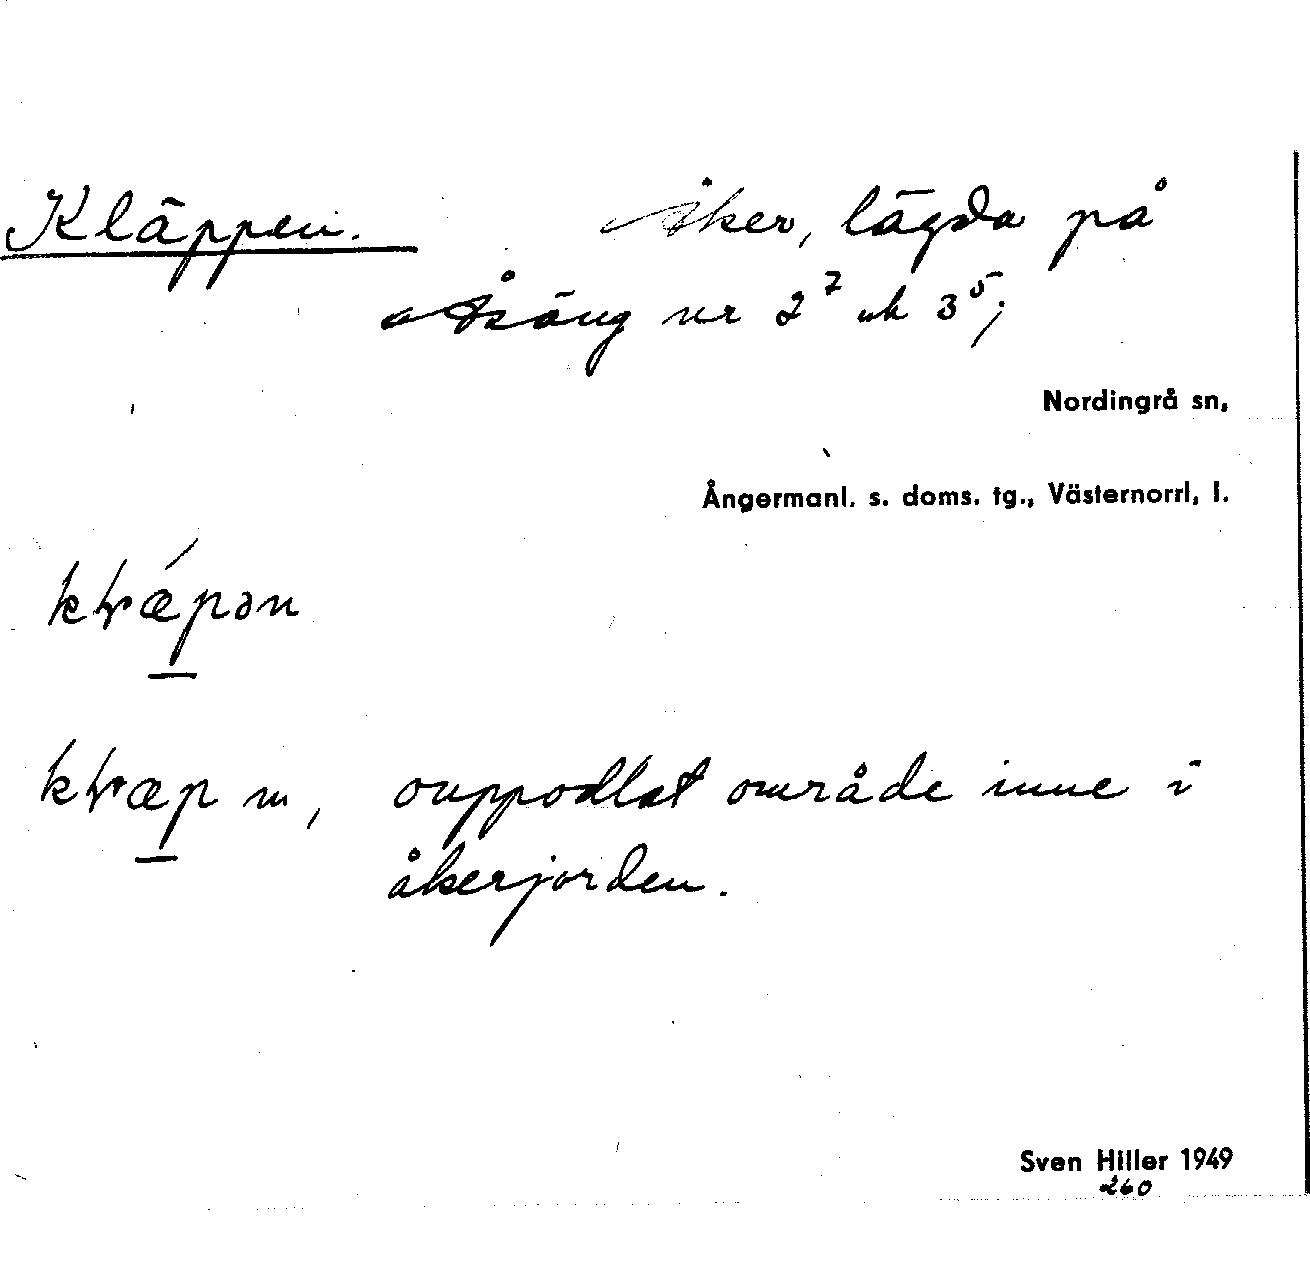 Kläppen. Åker, lägda på
Åsäng nr 2⁷ och 3⁵;
Nordingrå sn,
Ångermanl. s. doms. tg., Västernorrl. l.
ouppodlat område inne i
åkerjorden.
Sven Hiller 1949
260